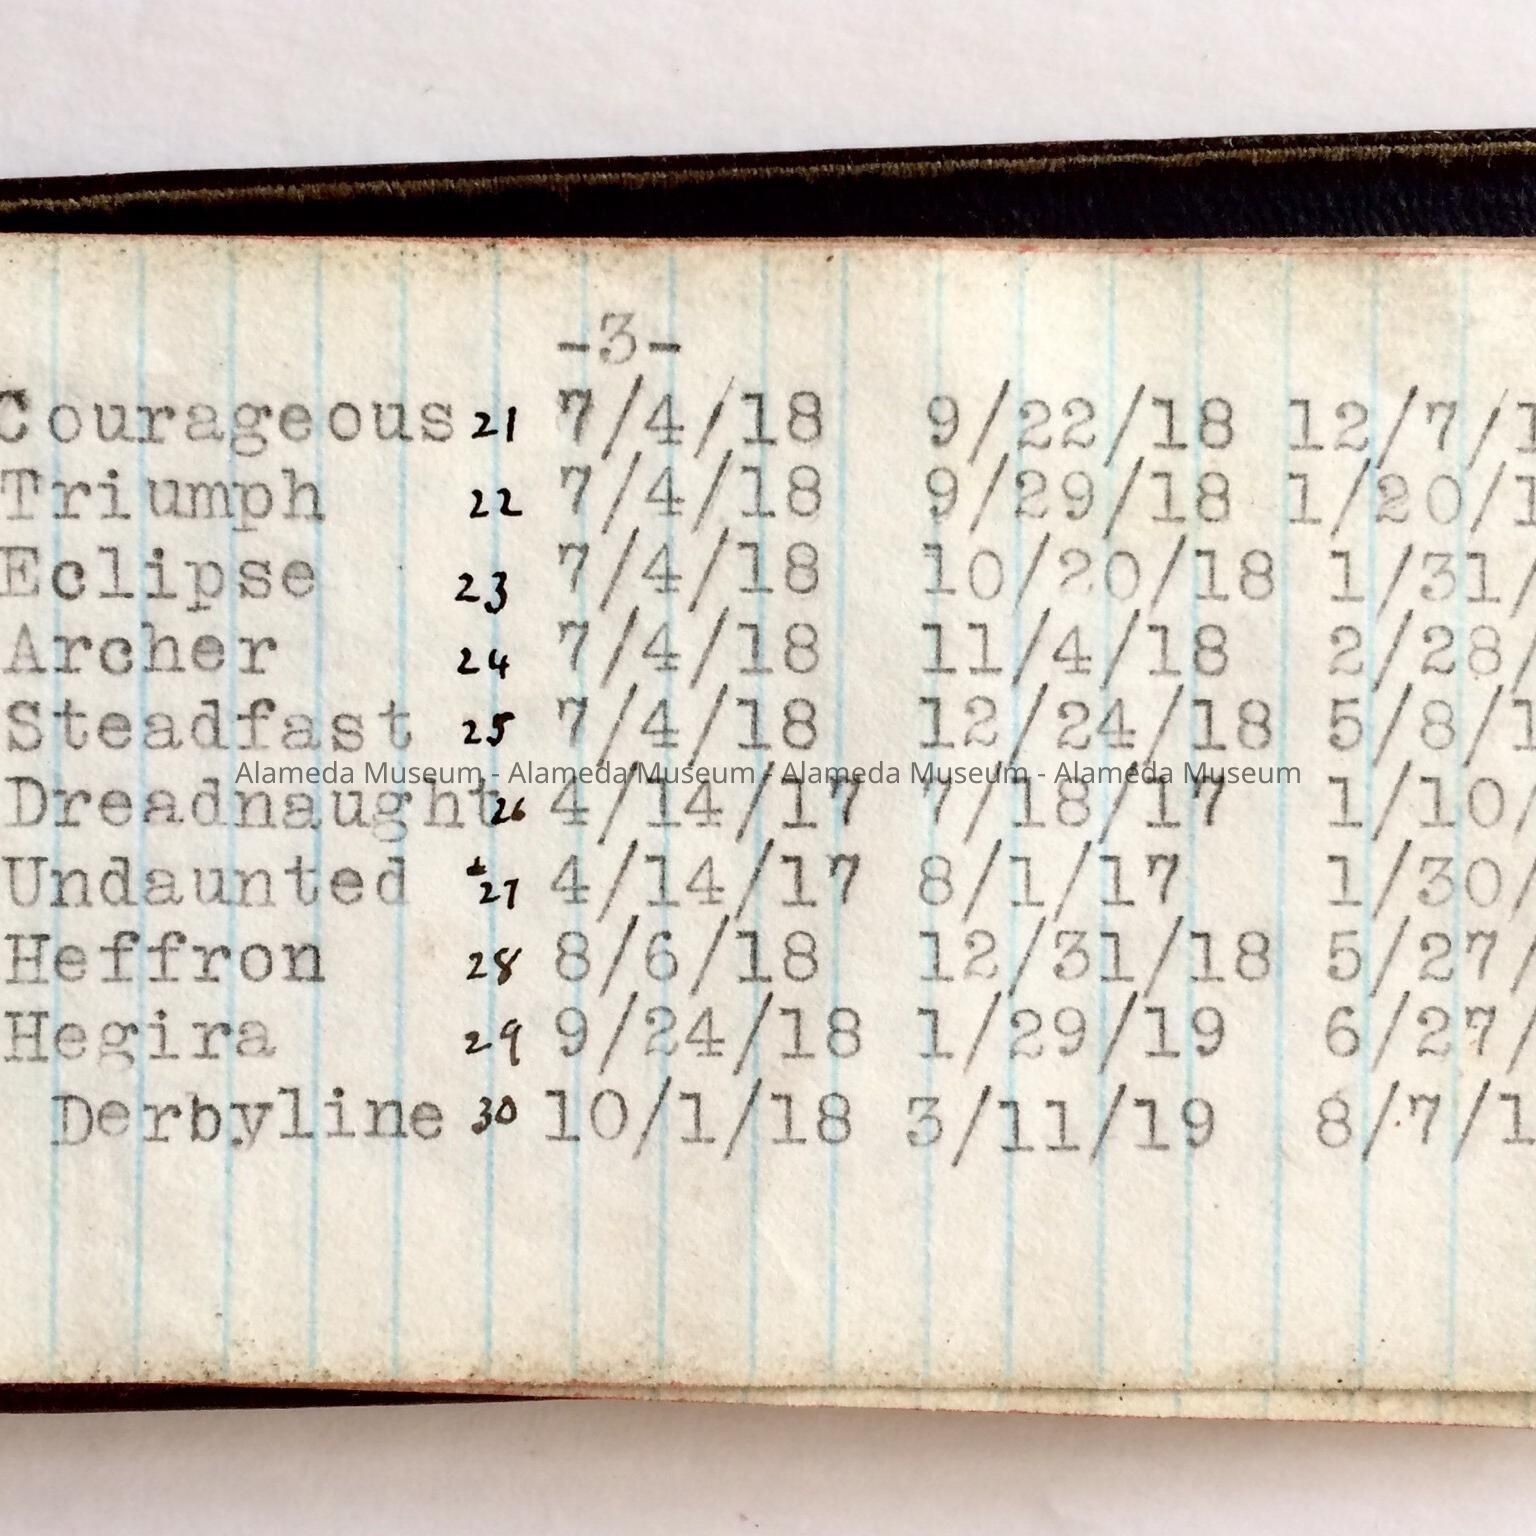 -3-
Courageous 21 7/4/18 9/22/18 12/7/1
Triumph 22 7/4/18 9/29/18 1/20/1
Eclipse 23 7/4/18 10/20/18 1/31/
Archer 24 7/4/18 11/4/18 2/28/
Steadfast 25 7/4/18 12/24/18 5/8/1
Alameda Museum - Alameda Museum - Alameda Museum - Alameda Museum
Dreadnaught 26 4/14/17 7/18/17 1/10/
Undaunted 27 4/14/17 8/1/17 1/30/
Heffron 28 8/6/18 12/31/18 5/27/
Hegira 29 9/24/18 1/29/19 6/27/
Derbyline 30 10/1/18 3/11/19 8/7/1